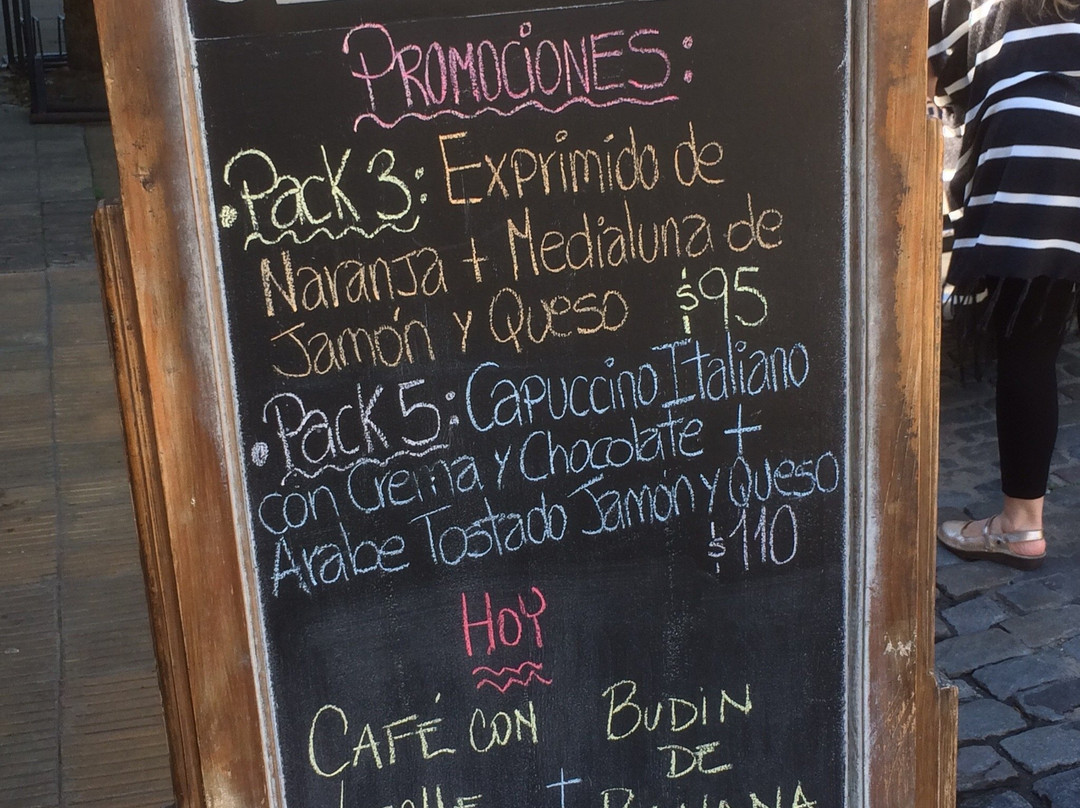 PROMOCIONES:
• Pack 3: Exprimido de
Naranja + Medialuna de
Jamón y Queso $95
• Pack 5: Capuccino Italiano
con Crema y Chocolate +
Arabe Tostado Jamón y Queso
$110
HOY
CAFÉ CON BUDIN
DE
+